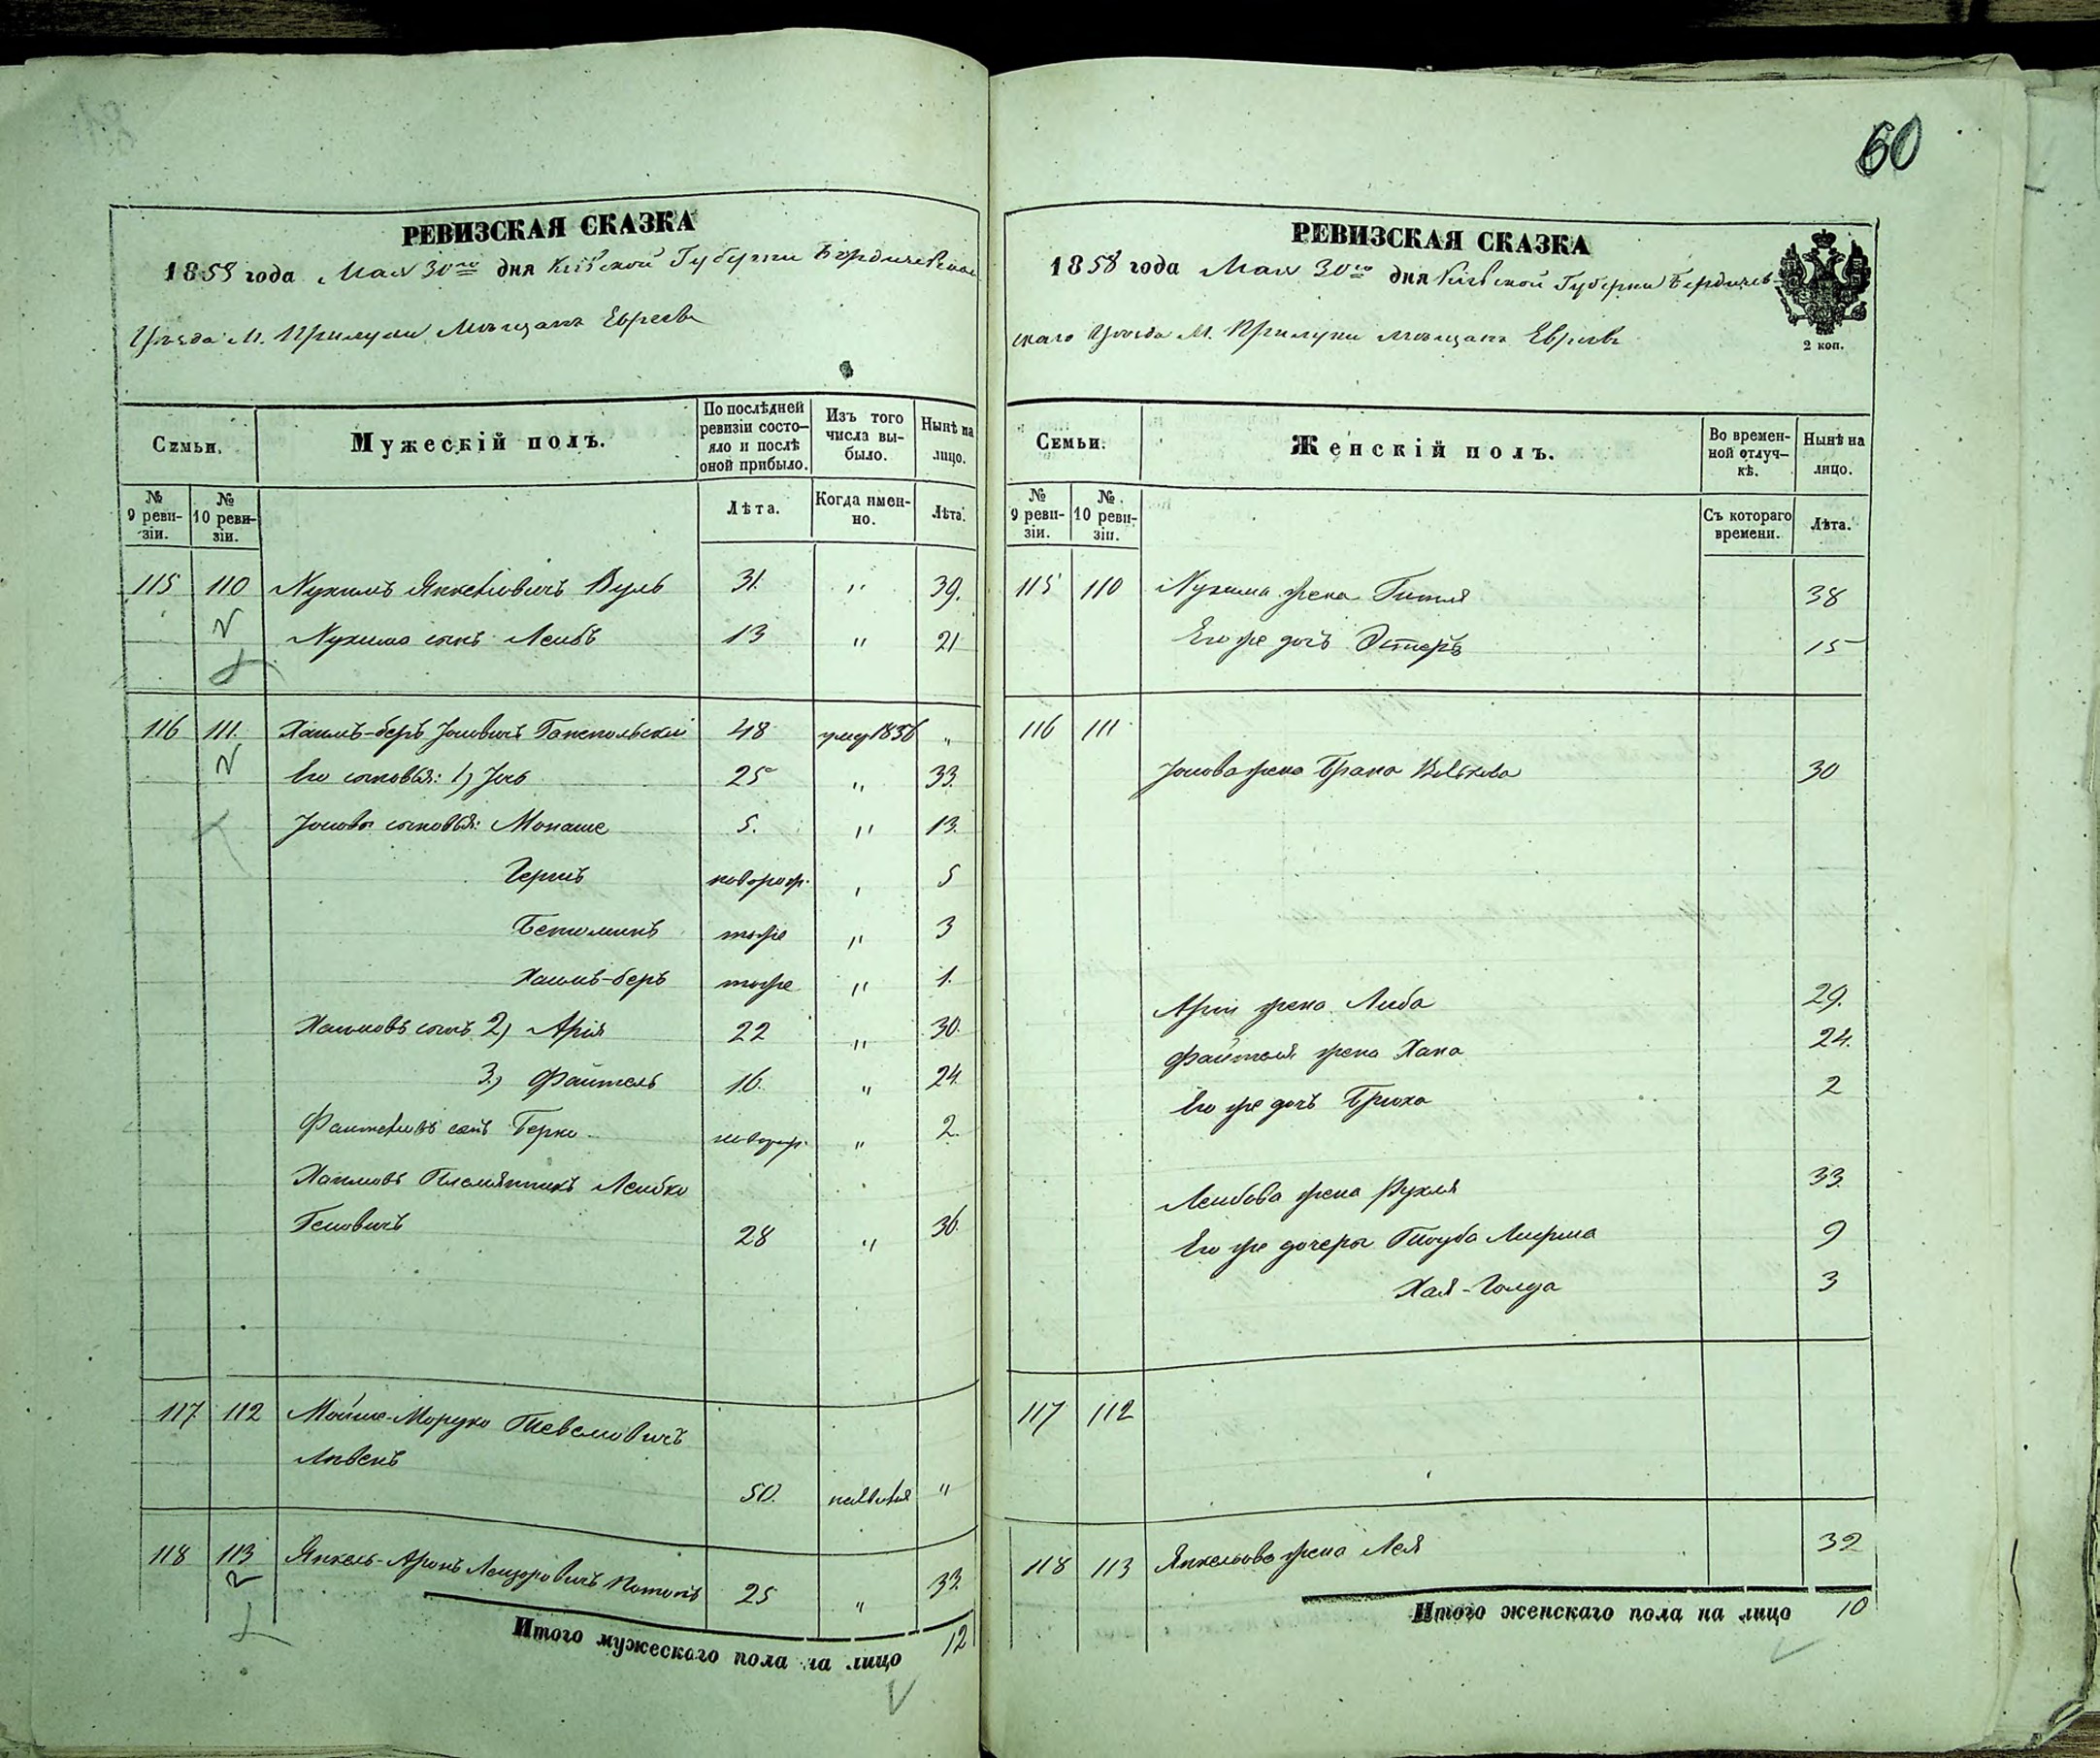 60
РЕВИЗСКАЯ СКАЗКА
1858 года Мая 30го дня Кіевской Губерніи Бердичевскаго
Уѣзда М. Прилуки Мѣщанъ Евреевъ
Семьи.
Мужескій полъ.
По послѣдней ревизіи состояло и послѣ оной прибыло.
Изъ того числа выбыло.
Нынѣ на лицо.
№ 9 ревизіи.
№ 10 ревизіи.
Лѣта.
Когда именно.
Лѣта.
115 110 Нухимъ Янкелювичъ Вуль 31. " 39.
Нухима сынъ Лейбъ 13 " 21
116 111. Хаимъ-беръ Іосювичъ 48 умер 1856 "
Его сыновья: 1) Іось 25 " 33.
Іосиовы сыновья: Монаше 5. " 13.
Гершъ новорож. " 5
Бенюминъ тоже " 3
Хаимъ-беръ тоже " 1.
Хаимовъ сынъ 2) Арія 22 " 30.
3.) Файтель 16. " 24.
Файтелювъ сынъ Берко новорож. " 2.
Хаимовъ Племянникъ Лейбко
28 " 36.
117. 112 Мойше-Мордко
50. "
118 113 Янкель-Аронъ Лейзоровичъ 25 " 33.
Итого мужескаго пола на лицо 12
РЕВИЗСКАЯ СКАЗКА
1858 года Мая 30го дня Кіевской Губерніи Бердичев-
скаго Уѣзда М. Прилуки мѣщанъ Евреевъ
2 коп.
Семьи.
Женскій полъ.
Во временной отлучкѣ.
Нынѣ на лицо.
№ 9 ревизіи.
№ 10 ревизіи.
Съ котораго времени.
Лѣта.
115 110 Нухима жена Гитля 38
Его же дочь Эстеръ 15
116 111
Іосиова жена Брана 30
Аріи жена Либа 29.
Файтеля жена Хана 24.
Его же дочь Бруха 2
Лейбова жена Рухля 33.
Его же дочеры 9
Хая-Голда 3
117 112
118 113 Янкельова жена Лея 32
Итого женскаго пола на лицо 10